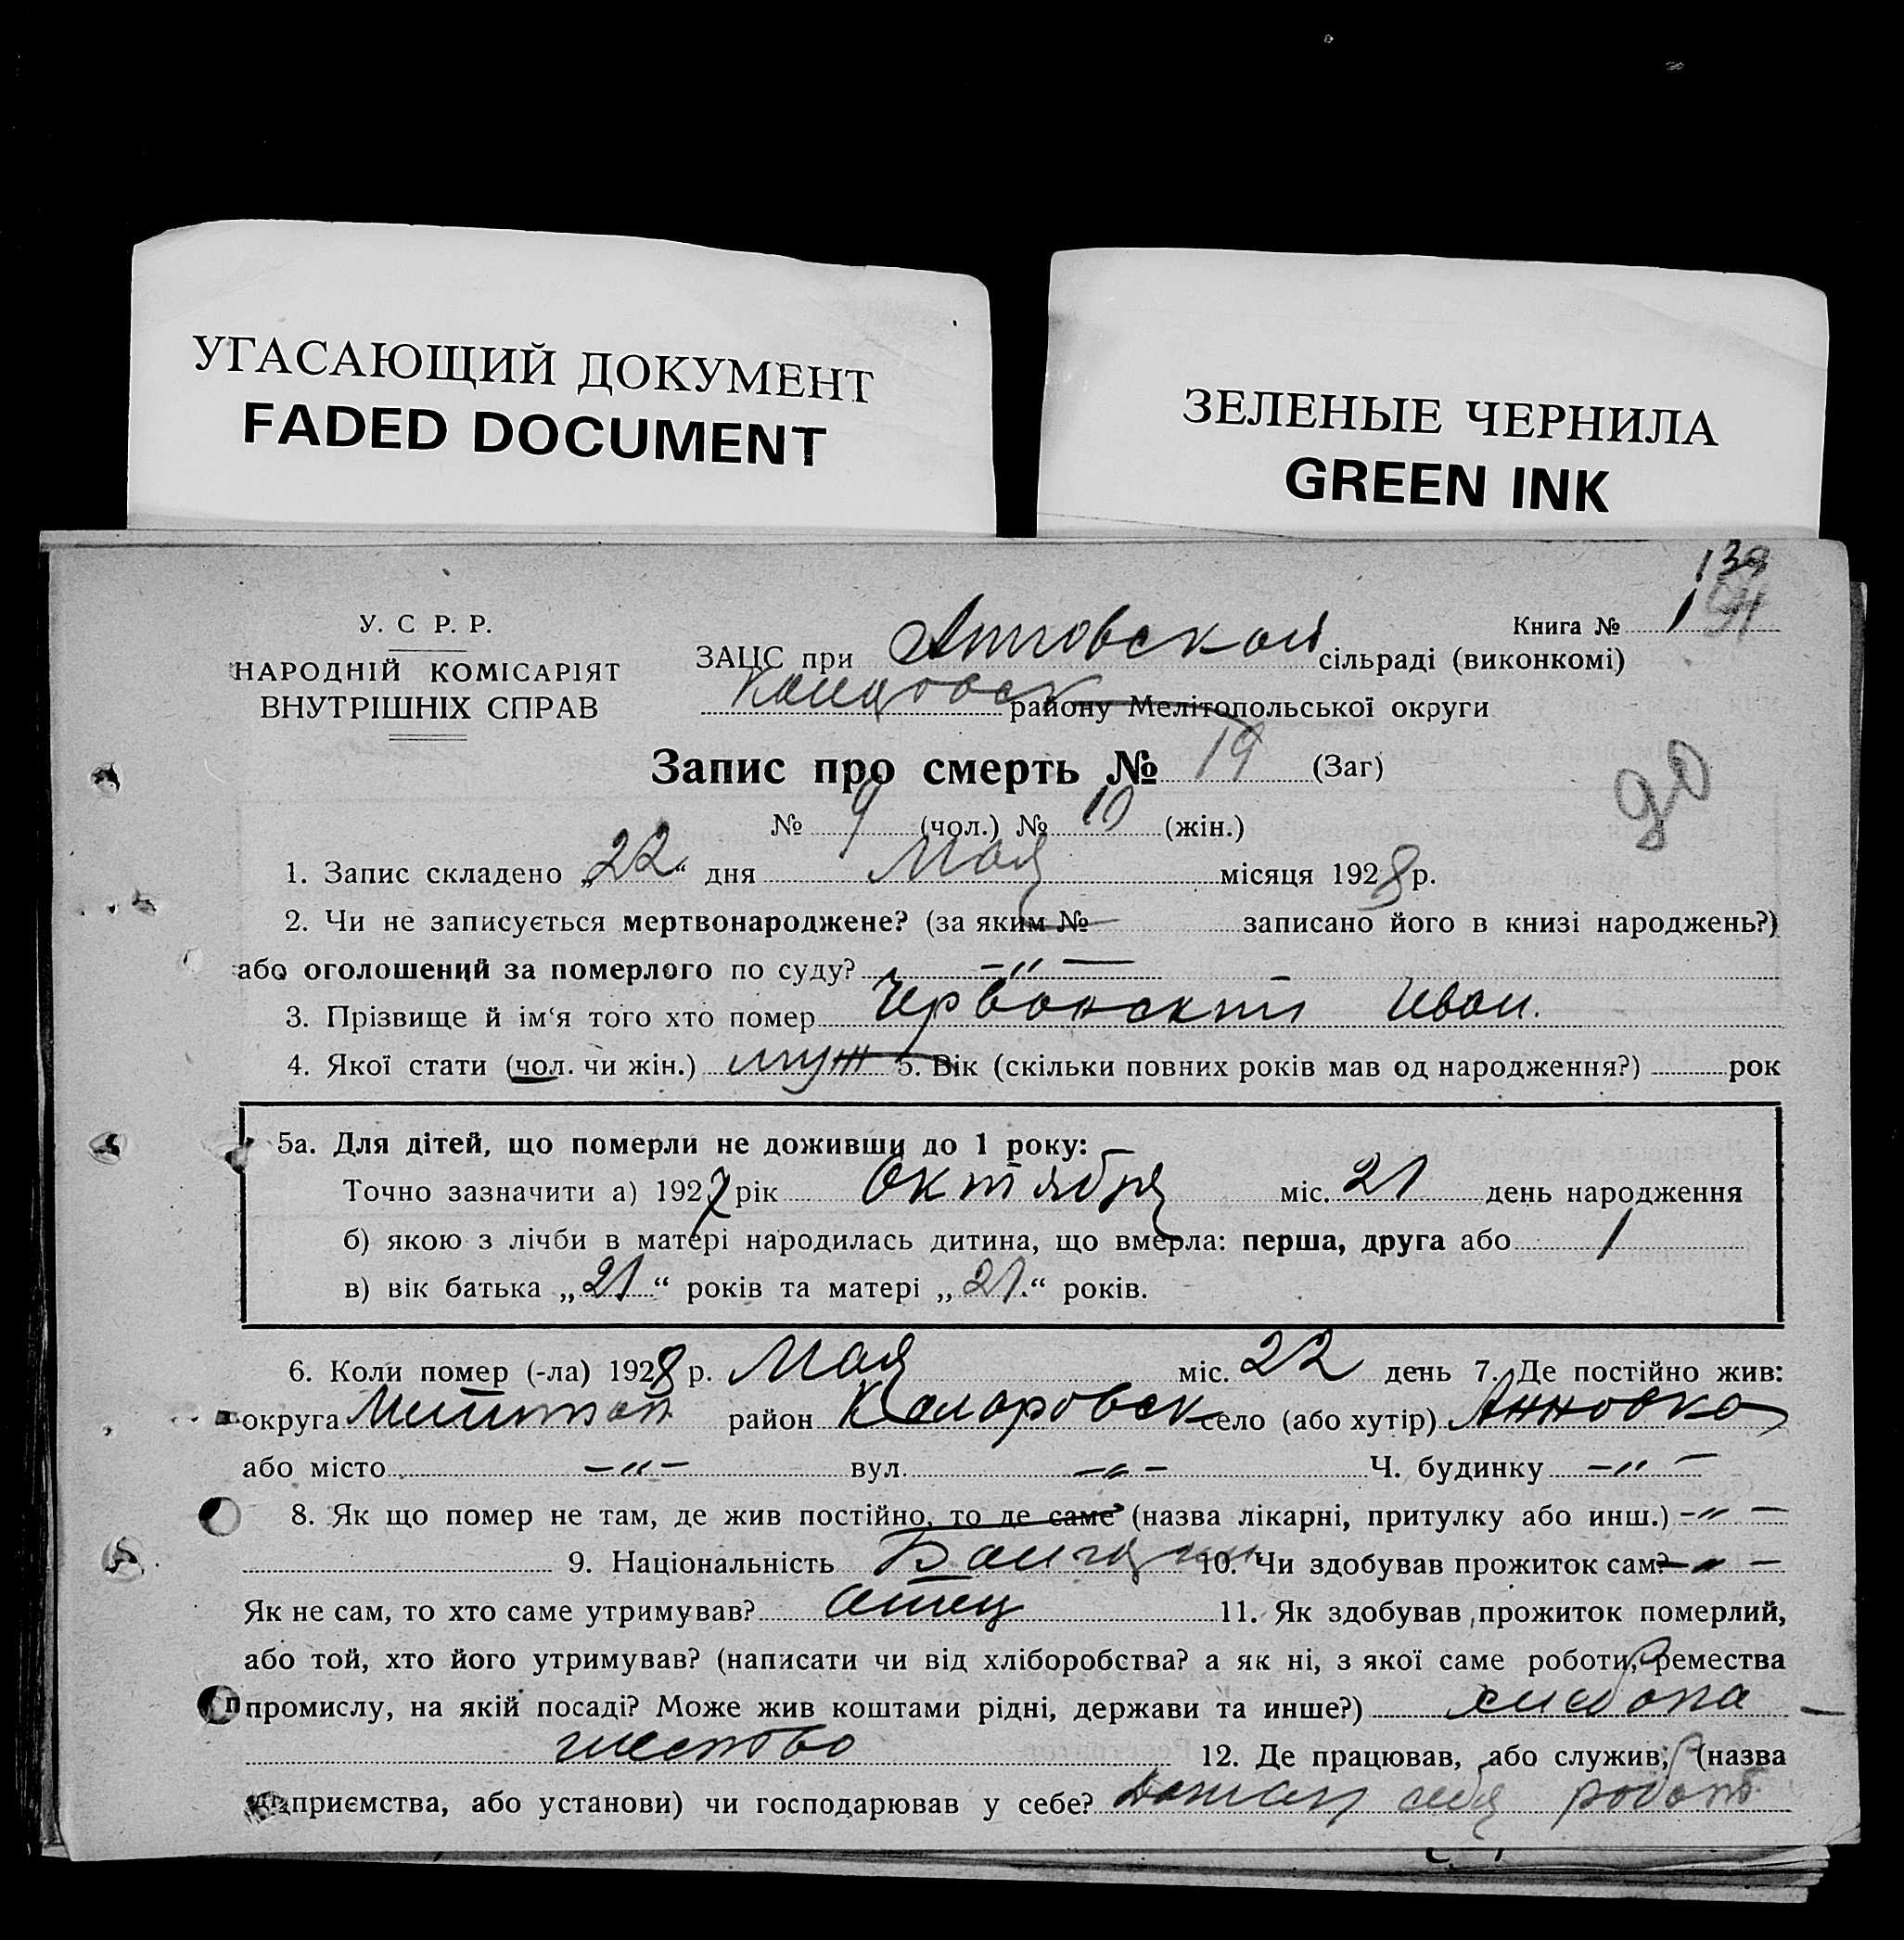 УГАСАЮЩИЙ ДОКУМЕНТ
FADED DOCUMENT
ЗЕЛЕНЫЕ ЧЕРНИЛА
GREEN INK
139
У. С Р. Р.
НАРОДНІЙ КОМІСАРІЯТ
ВНУТРІШНІХ СПРАВ
Книга № 1
ЗАЦС при Анновской сільраді (виконкомі)
району Мелітопольської округи
Запис про смерть № 19 (Заг)
90
№ 9 (чол.) № 10 (жін.)
1. Запис складено „22“ дня Мая місяця 1928 р.
2. Чи не записується мертвонароджене? (за яким № — записано його в книзі народжень?)
або оголошений за померлого по суду? –〃–
3. Прізвище й ім'я того хто помер Червонский Иван.
4. Якої стати (чол. чи жін.) муж 5. Вік (скільки повних років мав од народження?) рок
5а. Для дітей, що померли не доживши до 1 року:
Точно зазначити а) 1927 рік Октября міс. 21 день народження
б) якою з лічби в матері народилась дитина, що вмерла: перша, друга або 1
в) вік батька „21“ років та матері „21.“ років.
6. Коли помер (-ла) 1928 р. Мая міс. 22 день 7. Де постійно жив:
округа Мелитоп район Коларовск село (або хутір) Анновка
або місто –〃– вул. –〃– Ч. будинку –〃–
8. Як що помер не там, де жив постійно, то де саме (назва лікарні, притулку або инш.) –〃–
9. Національність Болгарин 10. Чи здобував прожиток сам? –〃–
Як не сам, то хто саме утримував? Отец 11. Як здобував прожиток померлий,
або той, хто його утримував? (написати чи від хліборобства? а як ні, з якої саме роботи, ремества
промислу, на якій посаді? Може жив коштами рідні, держави та инше?) хлебопа
шество 12. Де працював, або служив, (назва
підприємства, або установи) чи господарював у себе? себя